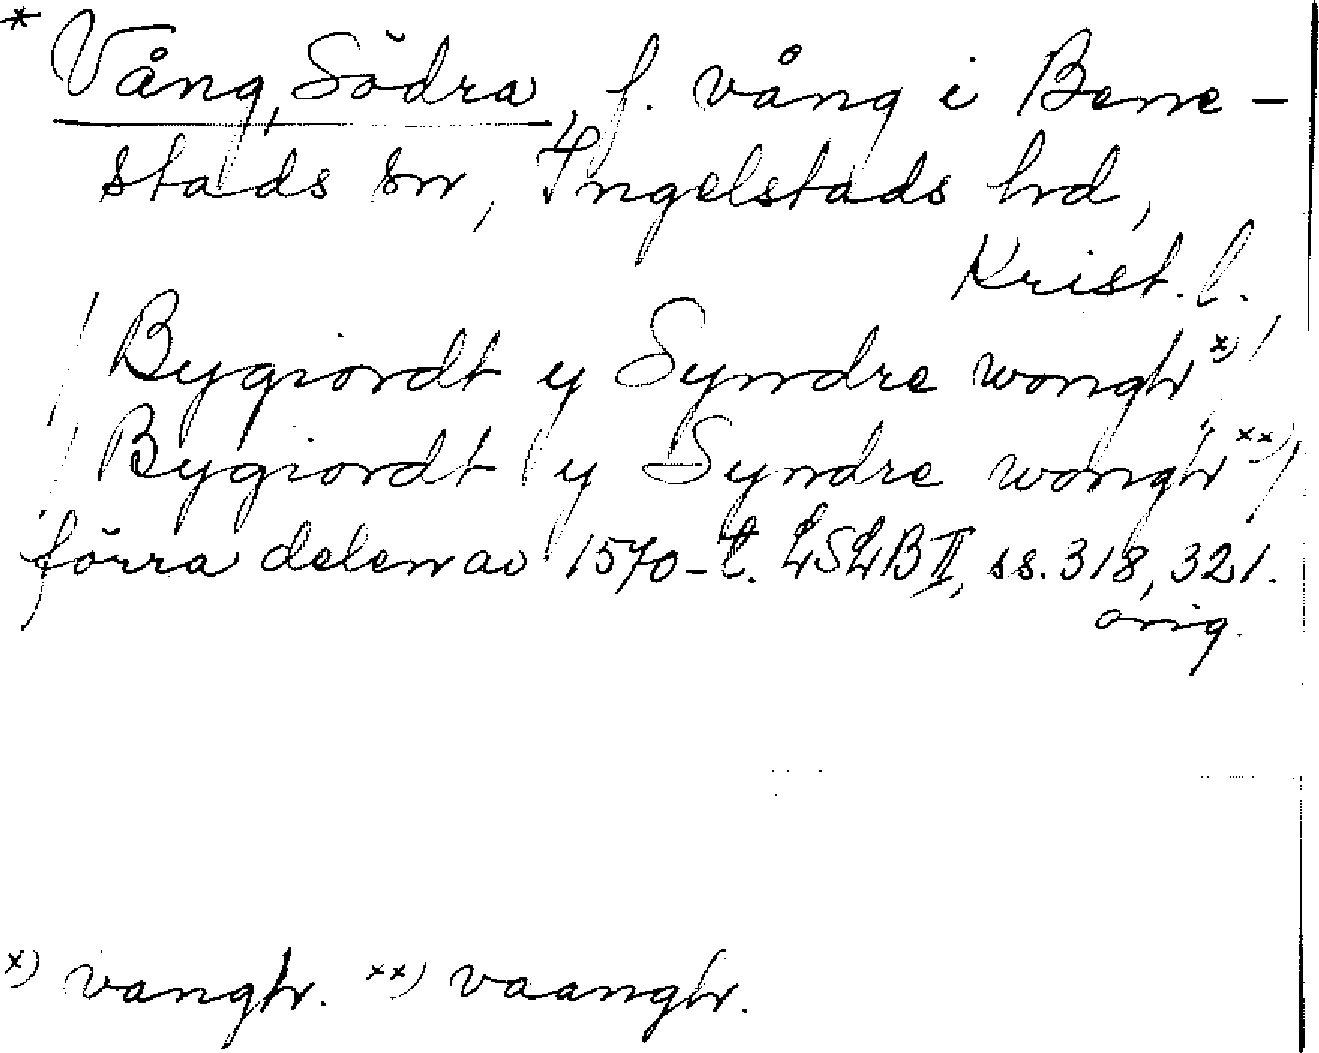 * Vång, Södra, f. vång i Bene-
stads sn, Ingelstads hd,
Krist. l.
/ Bygiordt y Syndre wongh x) /
/ Bygiordt y Syndre wongh xx) /
förra delen av 1570-t. LSLB II, ss. 318, 321.
orig.
x) vangh. xx) vaangh.